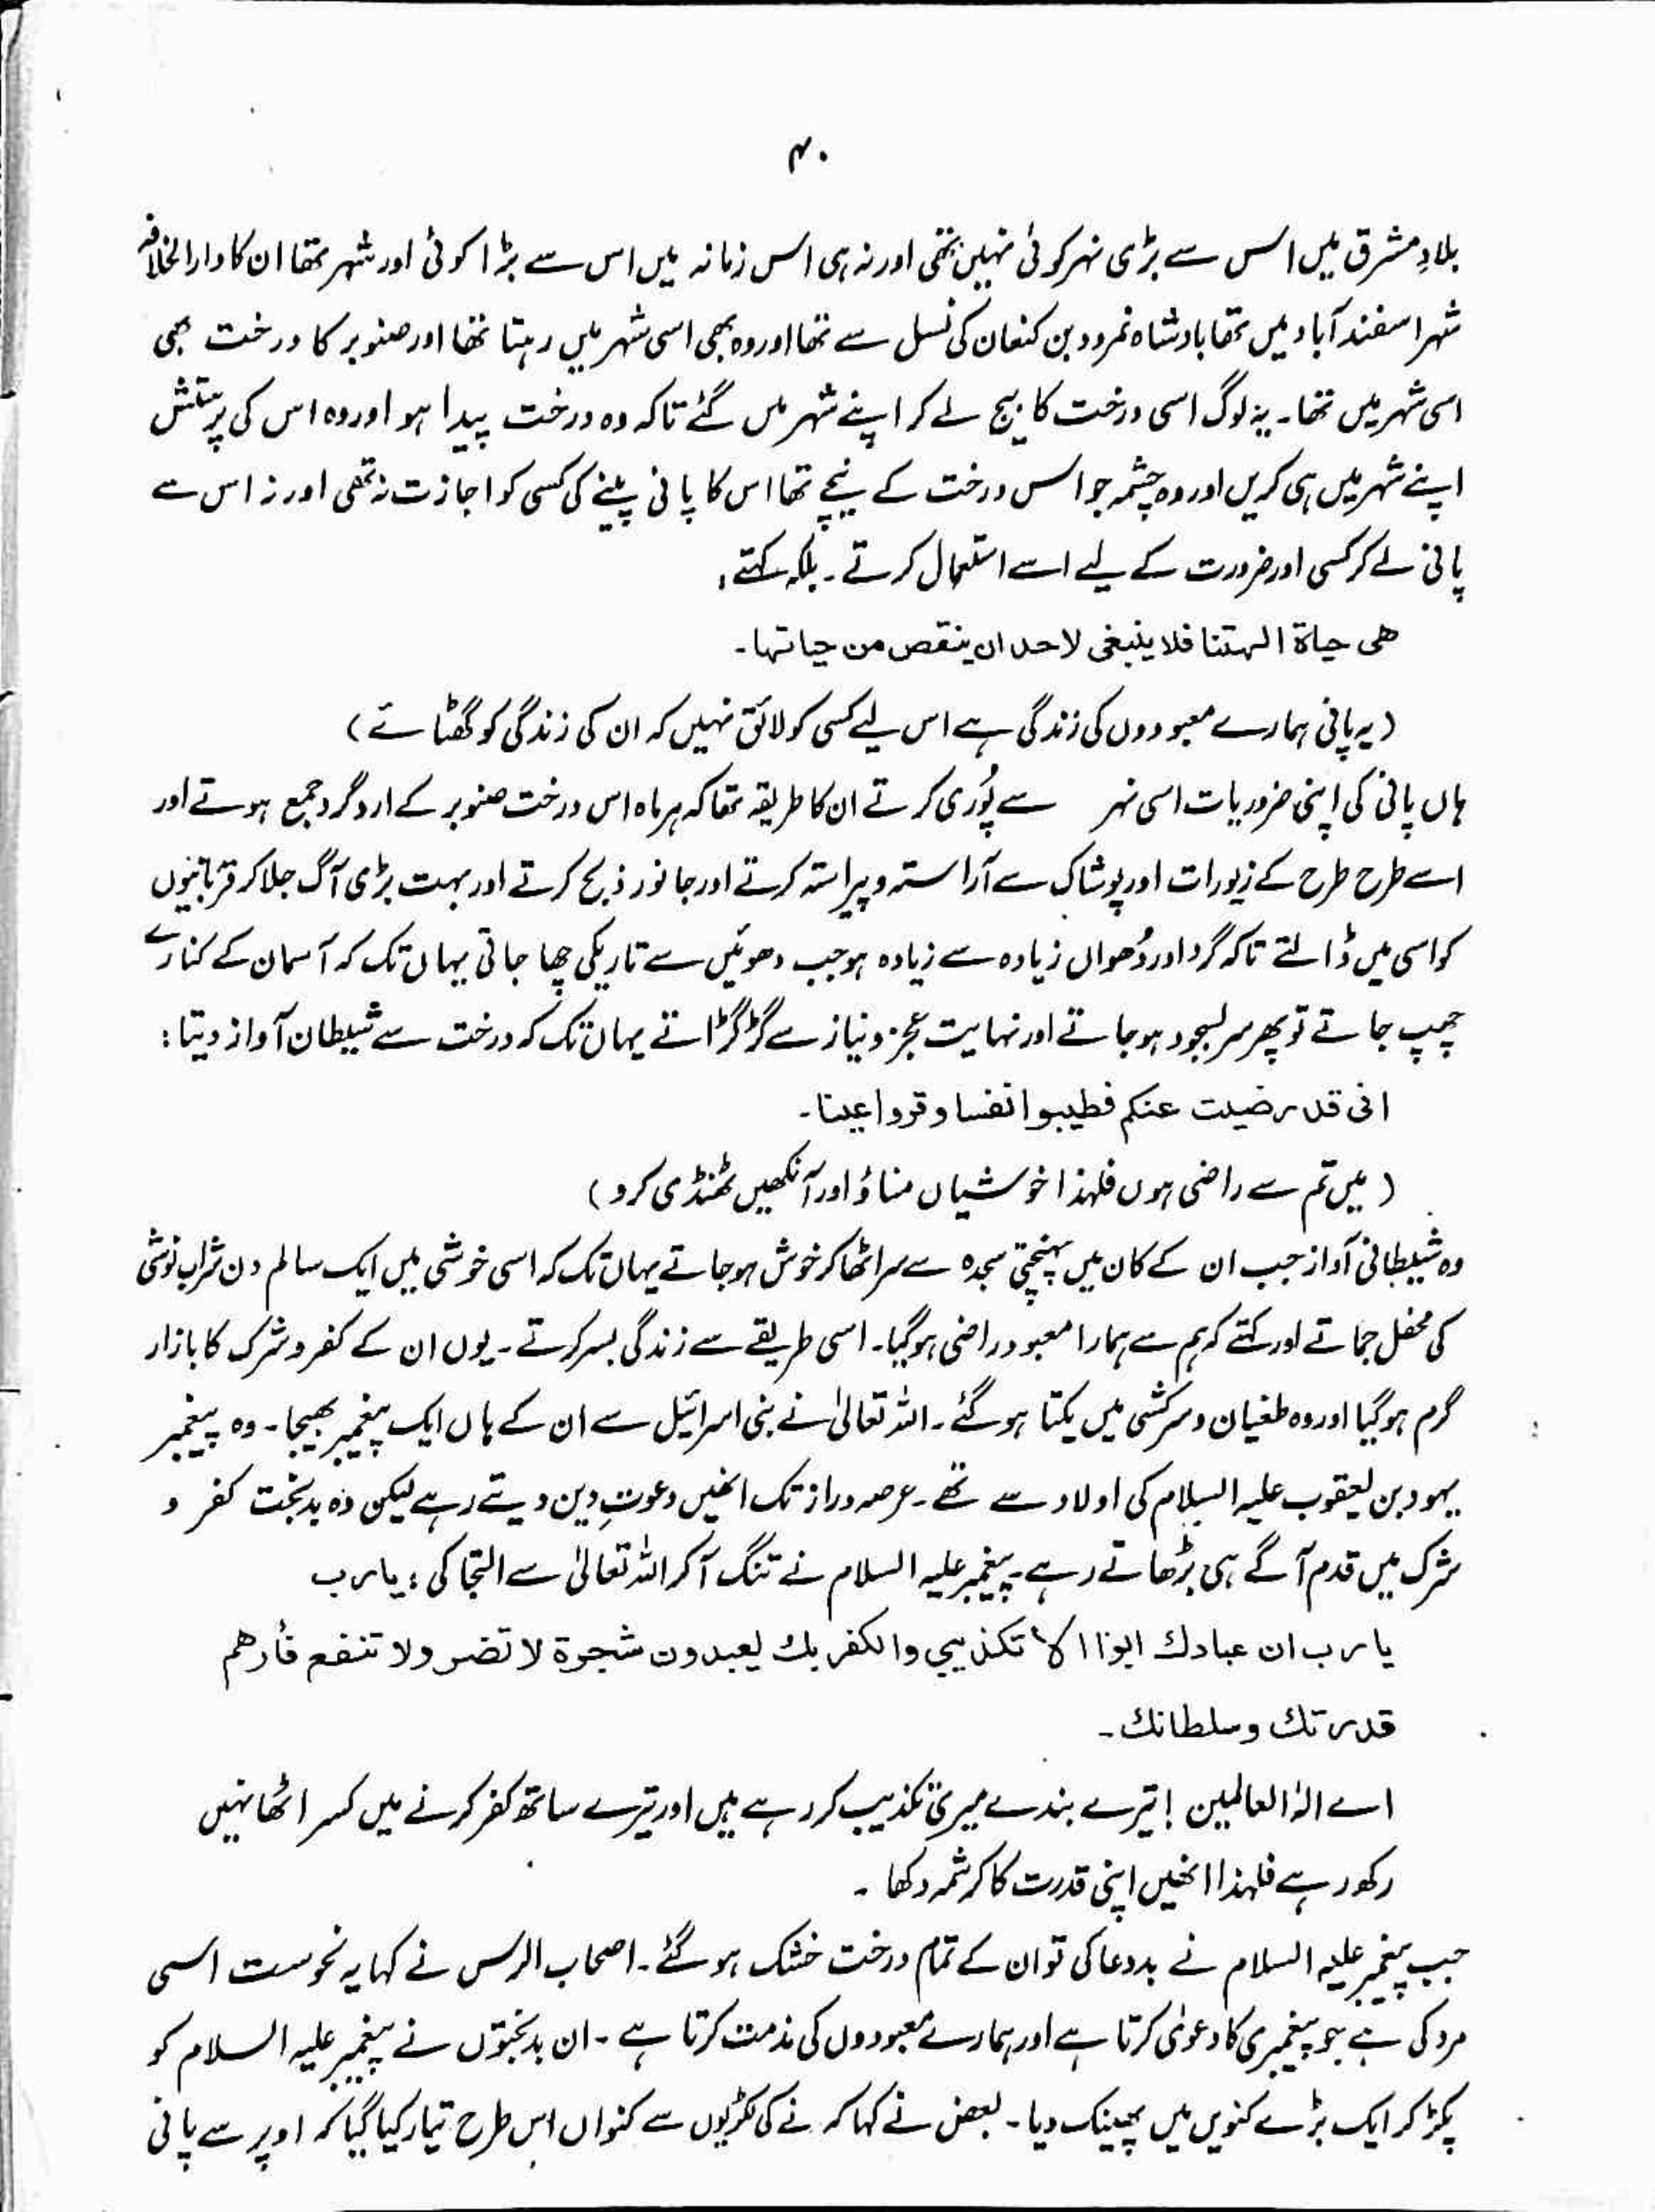 ۴۰
بلادِ مشرق میں اس سے بڑی نہر کوئی نہیں تھی اور نہ ہی اس زمانہ میں اس سے بڑا کوئی اور شہر تھا ان کا دارالخلافہ
شہر اسفند آباد میں تھا بادشاہ نمرود بن کنعان کی نسل سے تھا اور وہ بھی اسی شہر میں رہتا تھا اور صنوبر کا درخت بھی
اسی شہر میں تھا۔ یہ لوگ اسی درخت کا بیج لے کر اپنے شہر میں گئے تاکہ وہ درخت پیدا ہو اور وہ اس کی پرستش
اپنے شہر میں ہی کریں اور وہ چشمہ جو اس درخت کے نیچے تھا اس کا پانی پینے کی کسی کو اجازت نہ تھی اور نہ اس سے
پانی لے کر کسی اور ضرورت کے لیے اسے استعمال کرتے۔ بلکہ کہتے:
ھی حیاۃ الہتنا فلا ینبغی لاحد ان ینقص من حیاتہا۔
(یہ پانی ہمارے معبودوں کی زندگی ہے اس لیے کسی کو لائق نہیں کہ ان کی زندگی کو گھٹائے)
ہاں پانی کی اپنی ضروریات اسی نہر سے پُوری کرتے ان کا طریقہ تھا کہ ہر ماہ اس درخت صنوبر کے ارد گرد جمع ہوتے اور
اسے طرح طرح کے زیورات اور پوشاک سے آراستہ و پیراستہ کرتے اور جانور ذبح کرتے اور بہت بڑی آگ جلا کر قربانیوں
کو اسی میں ڈالتے تاکہ گرد اور دُھواں زیادہ سے زیادہ ہو جب دھوئیں سے تاریکی چھا جاتی یہاں تک کہ آسمان کے کنارے
چھپ جاتے تو پھر سربسجود ہو جاتے اور نہایت عجز و نیاز سے گڑگڑاتے یہاں تک کہ درخت سے شیطان آواز دیتا:
انی قد رضیت عنکم فطیبوا نفسا و قروا عینا۔
(میں تم سے راضی ہوں فلہذا خوشیاں مناؤ اور آنکھیں ٹھنڈی کرو)
وہ شیطانی آواز جب ان کے کان میں پہنچتی سجدہ سے سر اٹھا کر خوش ہو جاتے یہاں تک کہ اسی خوشی میں ایک سالم دن شراب نوشی
کی محفل جماتے اور کہتے کہ ہم سے ہمارا معبود راضی ہو گیا۔ اسی طریقے سے زندگی بسر کرتے۔ یوں ان کے کفر و شرک کا بازار
گرم ہو گیا اور وہ طغیان و سرکشی میں یکتا ہو گئے۔ اللہ تعالیٰ نے بنی اسرائیل سے ان کے ہاں ایک پیغمبر بھیجا۔ وہ پیغمبر
یہود بن یعقوب علیہ السلام کی اولاد سے تھے۔ عرصہ دراز تک انھیں دعوتِ دین دیتے رہے لیکن وہ بدبخت کفر و
شرک میں قدم آگے ہی بڑھاتے رہے۔ پیغمبر علیہ السلام نے تنگ آ کر اللہ تعالیٰ سے التجا کی: یا رب
یا رب ان عبادك ابوا الا تکذیبی والکفر بك یعبدون شجرة لا تضر ولا تنفع فأرھم
قدرتك و سلطانك۔
اے الٰہ العالمین! تیرے بندے میری تکذیب کر رہے ہیں اور تیرے ساتھ کفر کرنے میں کسر اٹھا نہیں
رکھ رہے فلہذا انھیں اپنی قدرت کا کرشمہ دکھا۔
جب پیغمبر علیہ السلام نے بددعا کی تو ان کے تمام درخت خشک ہو گئے۔ اصحاب الرس نے کہا یہ نحوست اسی
مرد کی ہے جو پیغمبری کا دعویٰ کرتا ہے اور ہمارے معبودوں کی مذمت کرتا ہے۔ ان بدبختوں نے پیغمبر علیہ السلام کو
پکڑ کر ایک بڑے کنویں میں پھینک دیا۔ بعض نے کہا کہ نے کی لکڑیوں سے کنواں اس طرح تیار کیا گیا کہ اوپر سے پانی